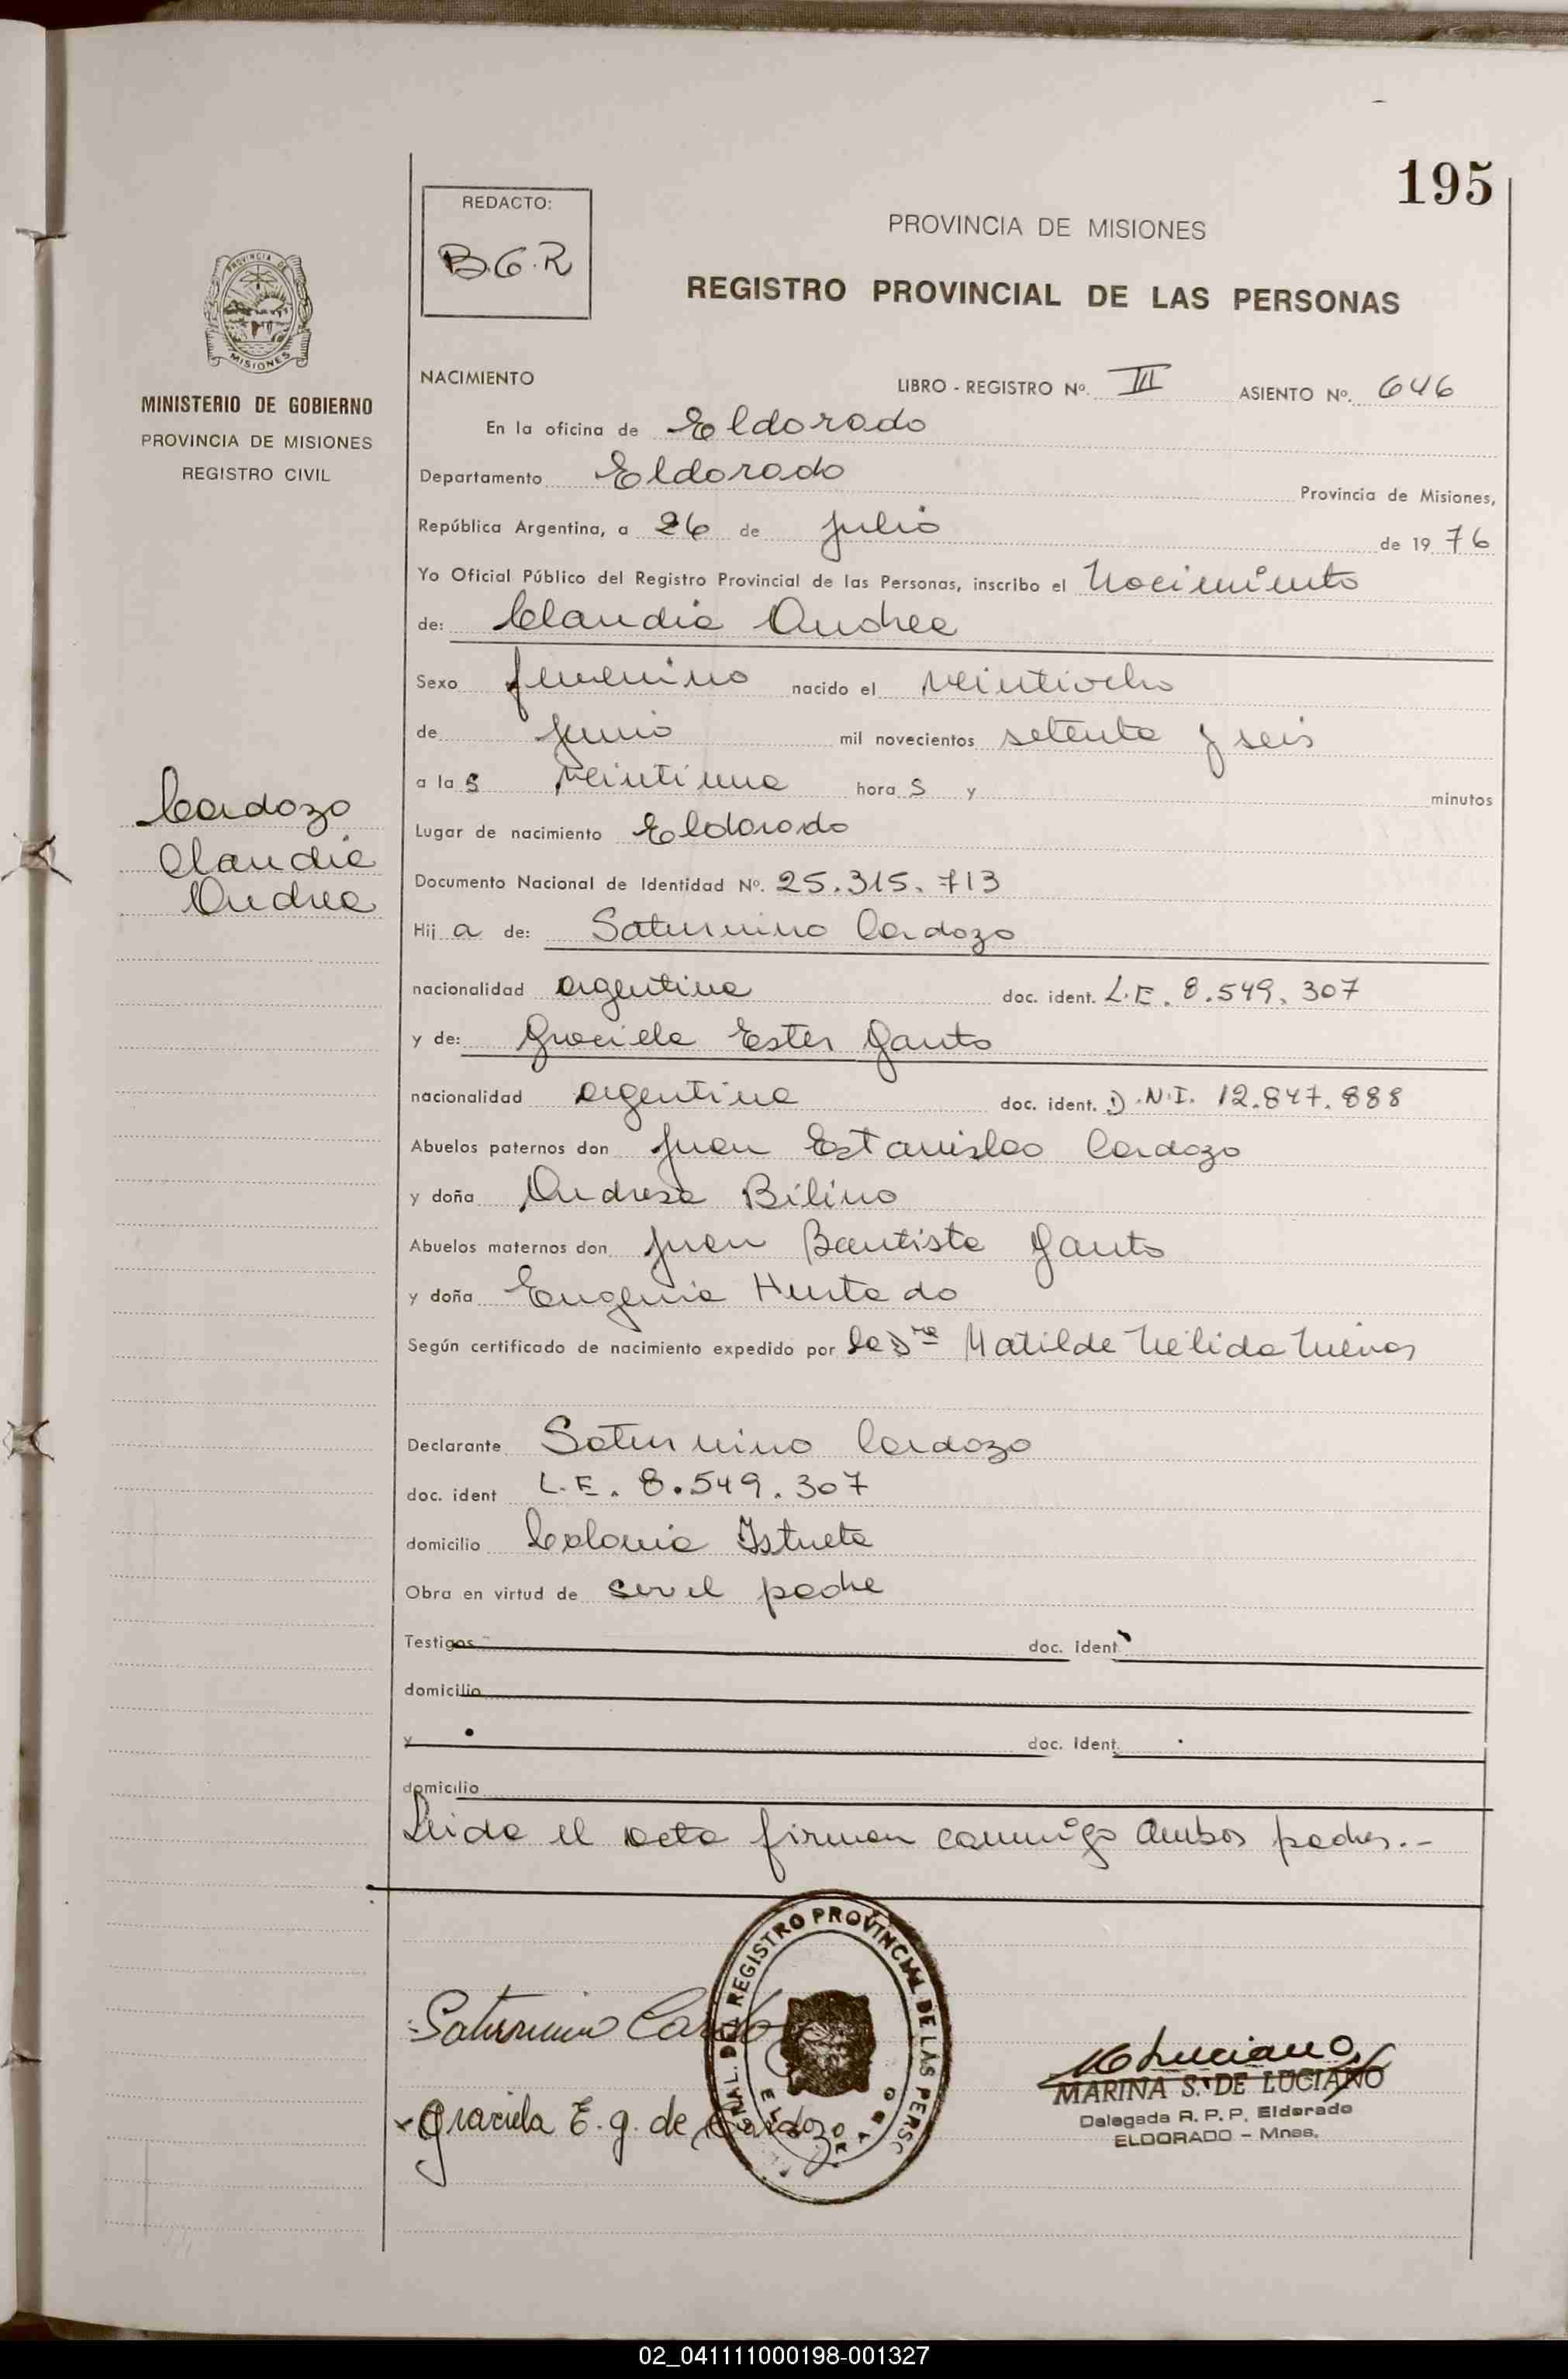 195
REDACTO:
B.G.R
PROVINCIA DE MISIONES
REGISTRO PROVINCIAL DE LAS PERSONAS
PROVINCIA DE
MISIONES
MINISTERIO DE GOBIERNO
PROVINCIA DE MISIONES
REGISTRO CIVIL
Cardozo
Claudia
Andrea
NACIMIENTO LIBRO - REGISTRO Nº. III ASIENTO Nº. 646
En la oficina de Eldorado
Departamento Eldorado Provincia de Misiones,
República Argentina, a 26 de julio de 19 76
Yo Oficial Público del Registro Provincial de las Personas, inscribo el Nacimiento
de: Claudia Andrea
Sexo femenino nacido el veintiocho
de junio mil novecientos setenta y seis
a la s veintiuna hora s y minutos
Lugar de nacimiento Eldorado
Documento Nacional de Identidad Nº. 25.315.713
Hij a de: Saturnino Cardozo
nacionalidad argentina doc. ident. L.E. 8.549.307
y de: Graciela Ester Gauto
nacionalidad argentina doc. ident. D.N.I. 12.847.888
Abuelos paternos don Juan Estanislao Cardozo
y doña Andresa Bilino
Abuelos maternos don Juan Bautista Gauto
y doña Eugenia Hurtado
Según certificado de nacimiento expedido por la Dra Matilde Nélida
Declarante Saturnino Cardozo
doc. ident L.E. 8.549.307
domicilio Colonia
Obra en virtud de ser el padre
Testigos doc. ident.
domicilio
y doc. ident.
domicilio
Leida el acta firman conmigo ambos padres.-
Saturnino Cardozo
Graciela E. g. de Cardozo
DEL REGISTRO PROVINCIAL DE LAS PERSO
MARINA S. DE LUCIANO
Delegada R. P. P. Eldorado
ELDORADO - Mnes.
02_041111000198-001327